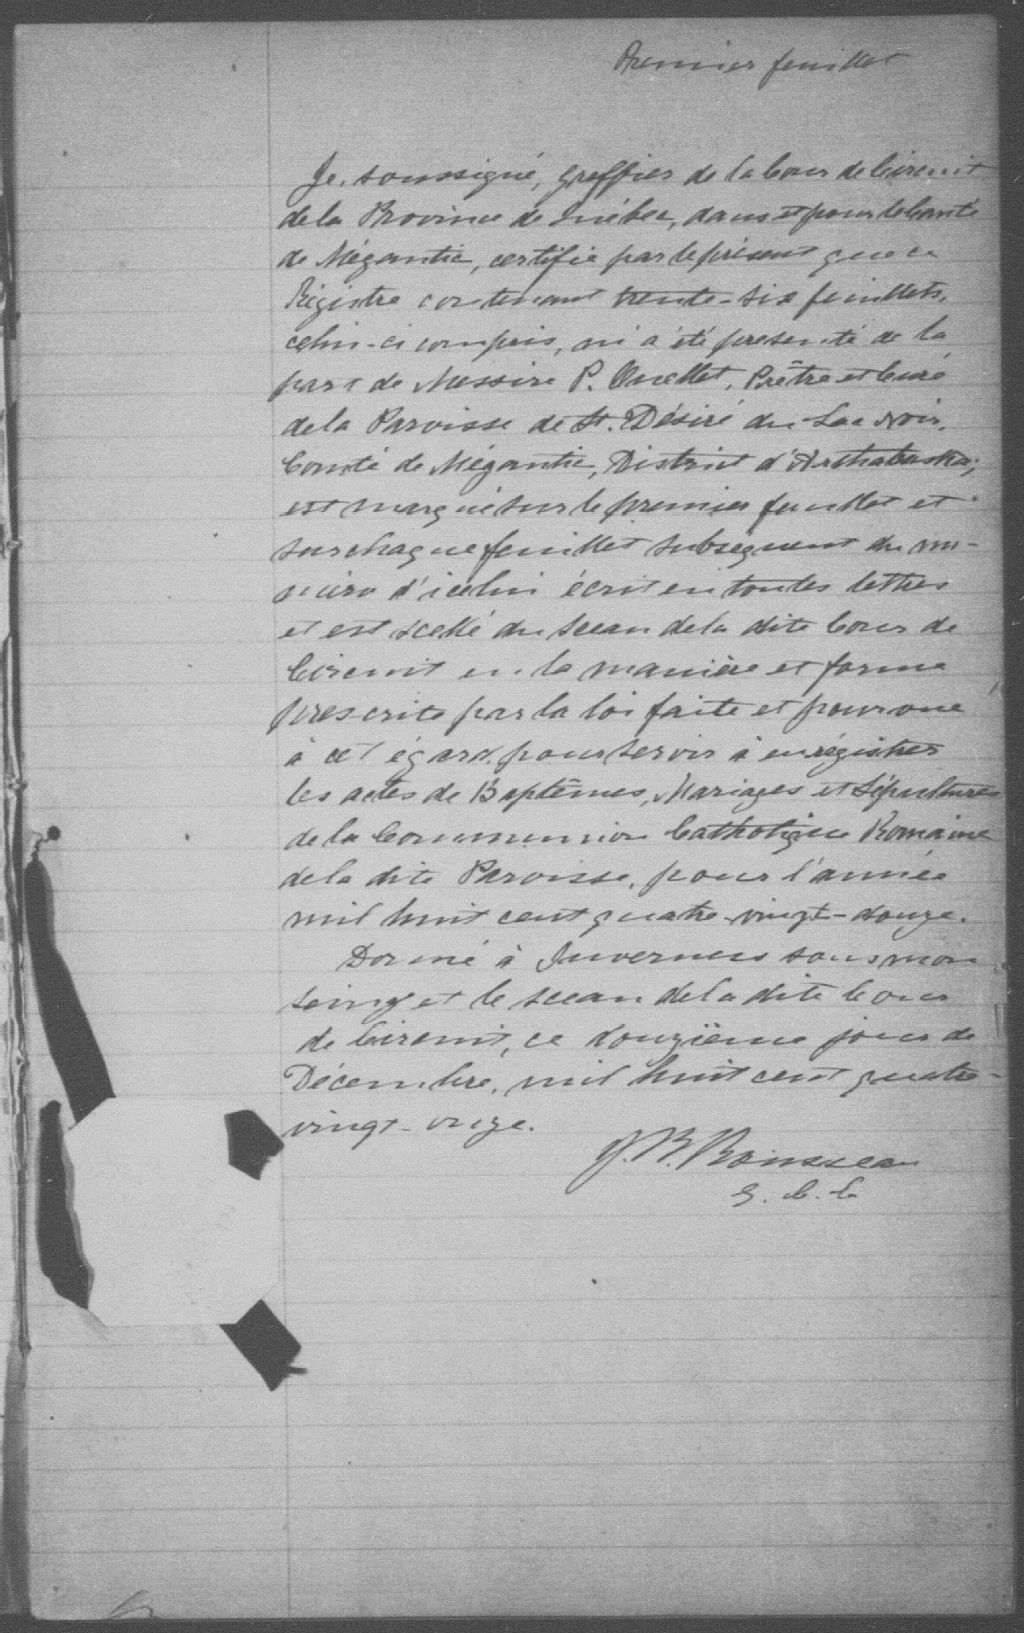 Premier feuillet
Je, soussigné, greffier de la Cour de Circuit
de la Province de Québec, dans et pour le Comté
de Mégantic, certifie par le présent que ce
Régistre contenant trente-six feuillets,
celui-ci compris, m'a été présenté de la
part de Messire P. Ouellet, Prêtre et Curé
de la Paroisse de St. Désiré du Lac Noir,
Comté de Mégantic, District d'Arthabaska,
est marqué sur le premier feuillet et
sur chaque feuillet subséquent du nu-
méro d'icelui écrit en toutes lettres
et est scellé du sceau de la dite Cour de
Circuit en la manière et forme
prescrite par la loi faite et pourvue
à cet égard, pour servir à enrégistrer
les actes de Baptêmes, Mariages et Sépultures
de la Communion Catholique Romaine
de la dite Paroisse, pour l'année
mil huit cent quatre-vingt-douze.
Donné à Inverness sous mon
seing et le sceau de la dite Cour
de Circuit, ce douzième jour de
Décembre, mil huit cent quatre-
vingt-onze.
J. B. Rousseau
G. C. C.